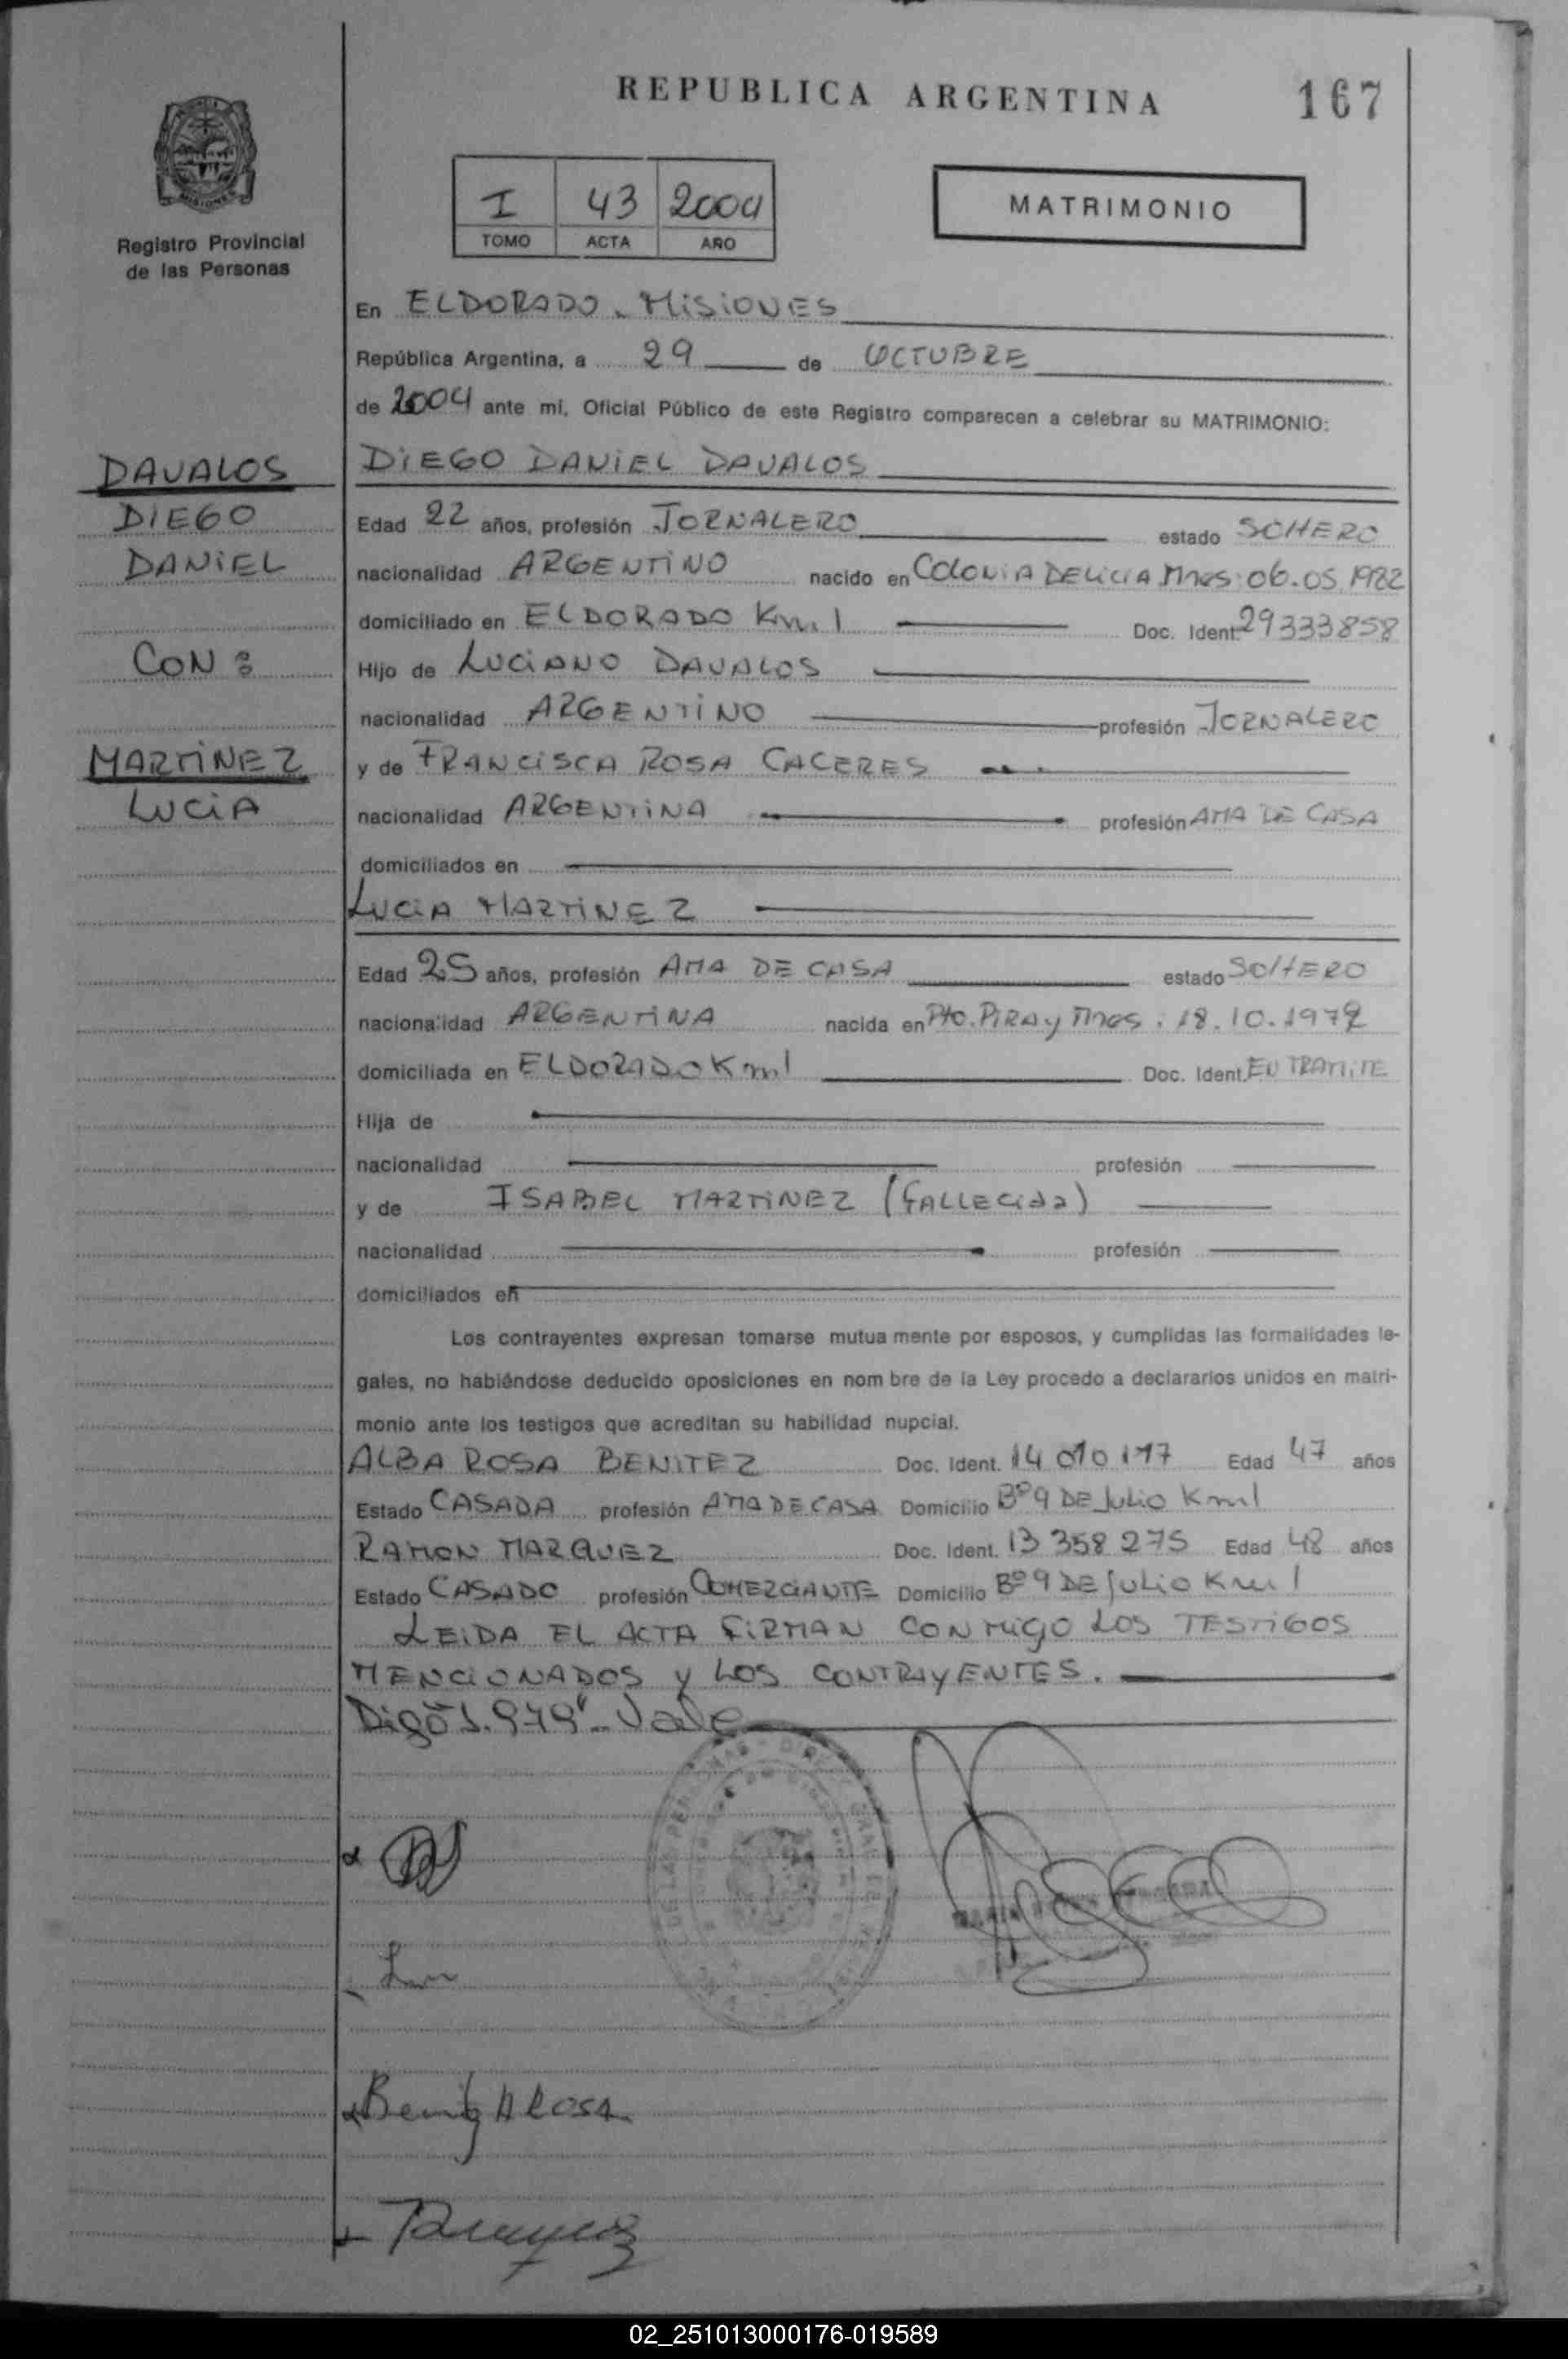 REPUBLICA ARGENTINA
167
MISIONES
Registro Provincial
de las Personas
I 43 2004
TOMO ACTA AÑO
MATRIMONIO
En ELDORADO. MISIONES
República Argentina, a 29 de OCTUBRE
de 2004 ante mí, Oficial Público de este Registro comparecen a celebrar su MATRIMONIO:
DAVALOS
DIEGO
DANIEL
CON :
MARTINEZ
LUCIA
DIEGO DANIEL DAVALOS
Edad 22 años, profesión JORNALERO estado SOLTERO
nacionalidad ARGENTINO nacido en COLONIA DELICIA Mnes. 06.05.1982
domiciliado en ELDORADO Km. 1 Doc. Ident. 29333858
Hijo de LUCIANO DAVALOS
nacionalidad ARGENTINO profesión JORNALERO
y de FRANCISCA ROSA CACERES
nacionalidad ARGENTINA profesión AMA DE CASA
domiciliados en
LUCIA MARTINEZ
Edad 25 años, profesión AMA DE CASA estado SOLTERO
nacionalidad ARGENTINA nacida en Pto. PIRAY Mnes. 18.10.1979
domiciliada en ELDORADO Km 1 Doc. Ident. EN TRAMITE
Hija de
nacionalidad profesión
y de ISABEL MARTINEZ (FALLECIDA)
nacionalidad profesión
domiciliados en
Los contrayentes expresan tomarse mutua mente por esposos, y cumplidas las formalidades le-
gales, no habiéndose deducido oposiciones en nom bre de la Ley procedo a declararlos unidos en matri-
monio ante los testigos que acreditan su habilidad nupcial.
ALBA ROSA BENITEZ Doc. Ident. 14 010 117 Edad 47 años
Estado CASADA profesión AMA DE CASA Domicilio Bº 9 DE JULIO Km 1
RAMON MARQUEZ Doc. Ident. 13 358 275 Edad 48 años
Estado CASADO profesión COMERCIANTE Domicilio Bº 9 DE JULIO Km 1
LEIDA EL ACTA FIRMAN CONMIGO LOS TESTIGOS
MENCIONADOS Y LOS CONTRAYENTES.
Digo "1.979" Vale
Benitez A Rosa
02_251013000176-019589